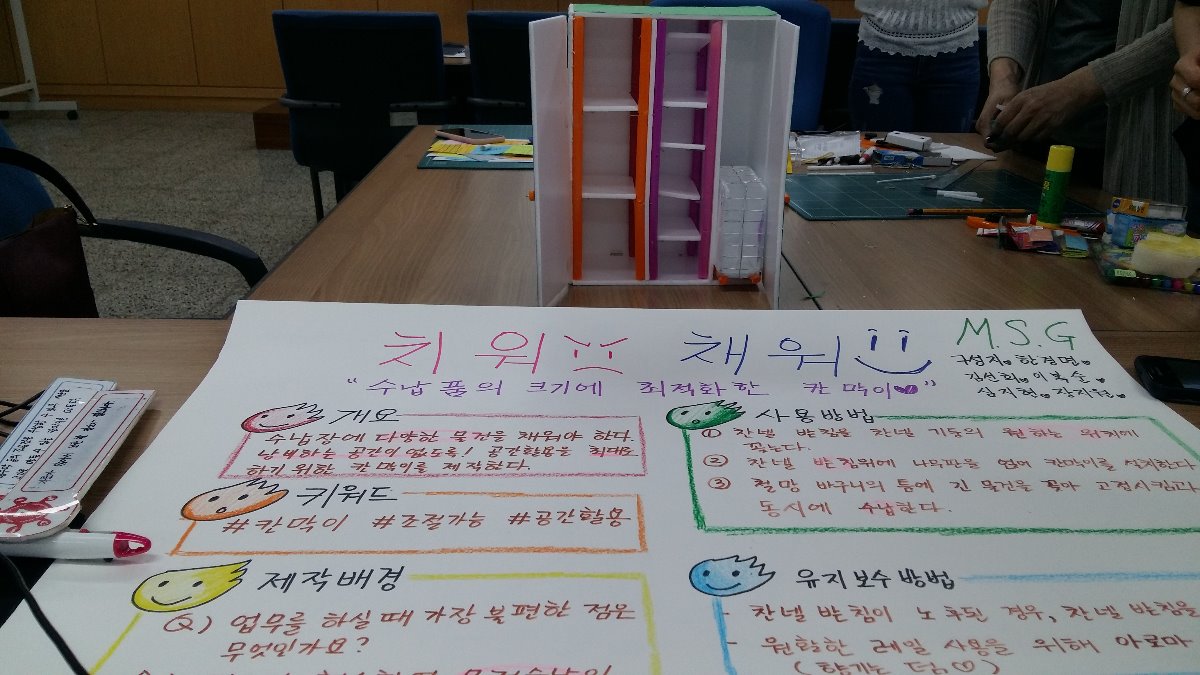 치워 채워
M.S.G
"수납품의 크기에 최적화한 칸막이"
구성지 한경명
김선희 이복술
심지현 장지원
개요
수납장에 다양한 물건을 채워야 한다.
낭비되는 공간이 없도록! 공간활용을 최대로
하기 위한 칸막이를 제작한다.
키워드
#칸막이 #조절가능 #공간활용
제작배경
Q) 업무를 하실 때 가장 불편한 점은
무엇인가요?
사용방법
① 찬넬 받침을 찬넬 기둥의 원하는 위치에
꽂는다.
② 찬넬 받침위에 나무판을 얹어 칸막이를 설치한다
③ 철망 바구니의 틈에 긴 물건을 꽂아 고정시킴과
동시에 수납한다.
유지보수방법
- 찬넬 받침이 노후된 경우, 찬넬 받침을
- 원활한 레일 사용을 위해 아로마
(향기는 덤♡)